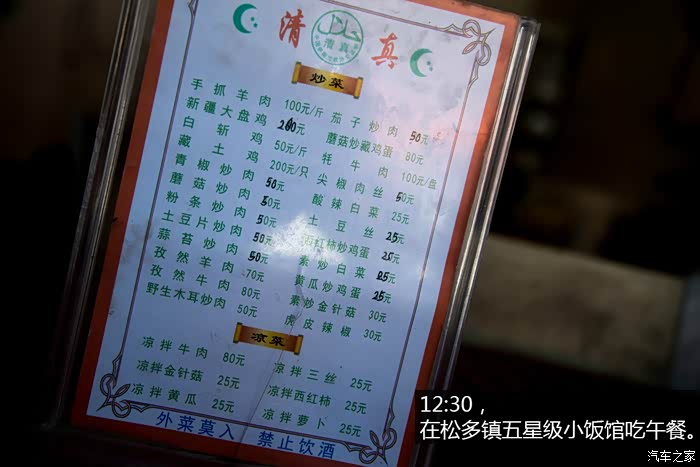 清真
清真
炒菜
手抓羊肉 100元/斤 茄子炒肉 50元
新疆大盘鸡 200元 蘑菇炒藏鸡蛋 80元
白斩鸡 50元/斤 牦牛肉 100元/盘
藏土鸡 200元/只 尖椒肉丝 50元
青椒炒肉 50元 酸辣白菜 25元
蘑菇炒肉 50元 土豆丝 25元
粉条炒肉 50元 西红柿炒鸡蛋 25元
土豆片炒肉 50元 素炒白菜 25元
蒜苔炒肉 50元 黄瓜炒鸡蛋 25元
孜然羊肉 70元 素炒金针菇 30元
孜然牛肉 80元 虎皮辣椒 30元
野生木耳炒肉 50元
凉菜
凉拌牛肉 80元 凉拌三丝 25元
凉拌金针菇 25元 凉拌西红柿 25元
凉拌黄瓜 25元 凉拌萝卜 25元
外菜莫入 禁止饮酒
12:30，
在松多镇五星级小饭馆吃午餐。
汽车之家